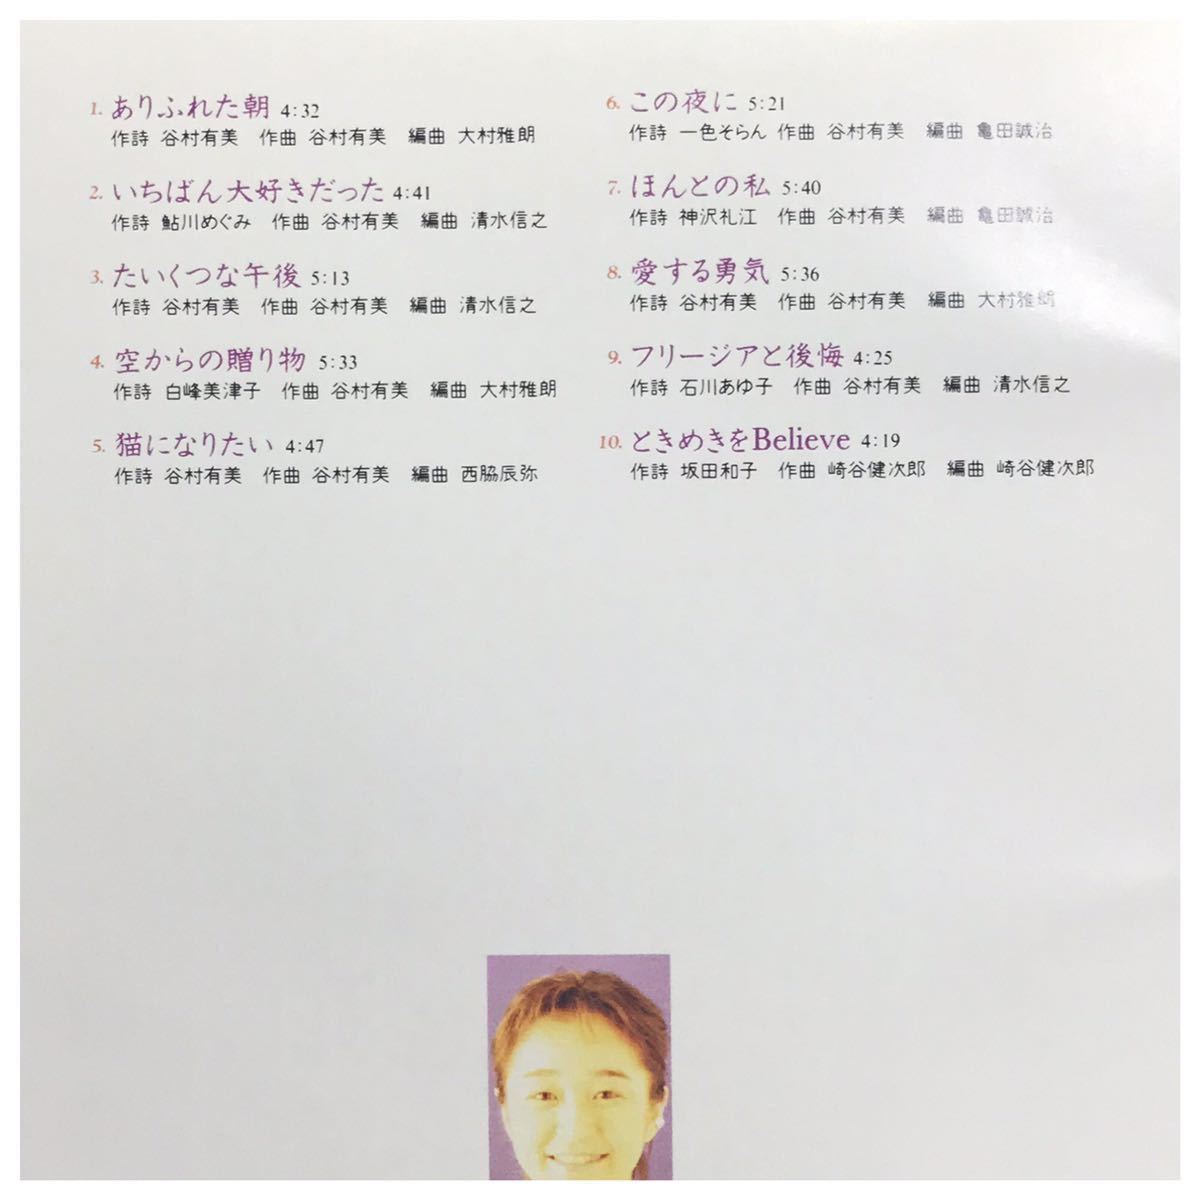 1. ありふれた朝 4:32
作詩 谷村有美 作曲 谷村有美 編曲 大村雅朗
2. いちばん大好きだった 4:41
作詩 鮎川めぐみ 作曲 谷村有美 編曲 清水信之
3. たいくつな午後 5:13
作詩 谷村有美 作曲 谷村有美 編曲 清水信之
4. 空からの贈り物 5:33
作詩 白峰美津子 作曲 谷村有美 編曲 大村雅朗
5. 猫になりたい 4:47
作詩 谷村有美 作曲 谷村有美 編曲 西脇辰弥
6. この夜に 5:21
作詩 一色そらん 作曲 谷村有美 編曲 亀田誠治
7. ほんとの私 5:40
作詩 神沢礼江 作曲 谷村有美 編曲 亀田誠治
8. 愛する勇気 5:36
作詩 谷村有美 作曲 谷村有美 編曲 大村雅朗
9. フリージアと後悔 4:25
作詩 石川あゆ子 作曲 谷村有美 編曲 清水信之
10. ときめきをBelieve 4:19
作詩 坂田和子 作曲 崎谷健次郎 編曲 崎谷健次郎